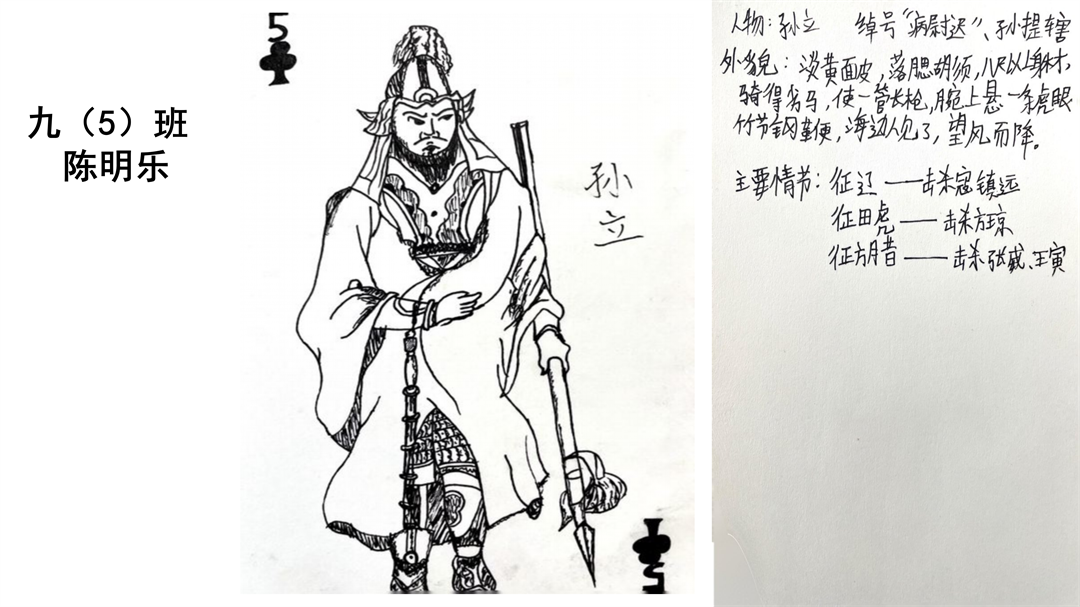 九（5）班
陈明乐
5
孙
立
5
人物：孙立 绰号“病尉迟”、孙提辖
外貌：淡黄面皮，落腮胡须，八尺以上身材，
骑得劣马，使一管长枪，腕上悬一条虎眼
竹节钢鞭，海边人见了，望风而降。
主要情节：征辽——击杀寇镇远
征田虎——击杀方琼
征方腊——击杀张威、王寅